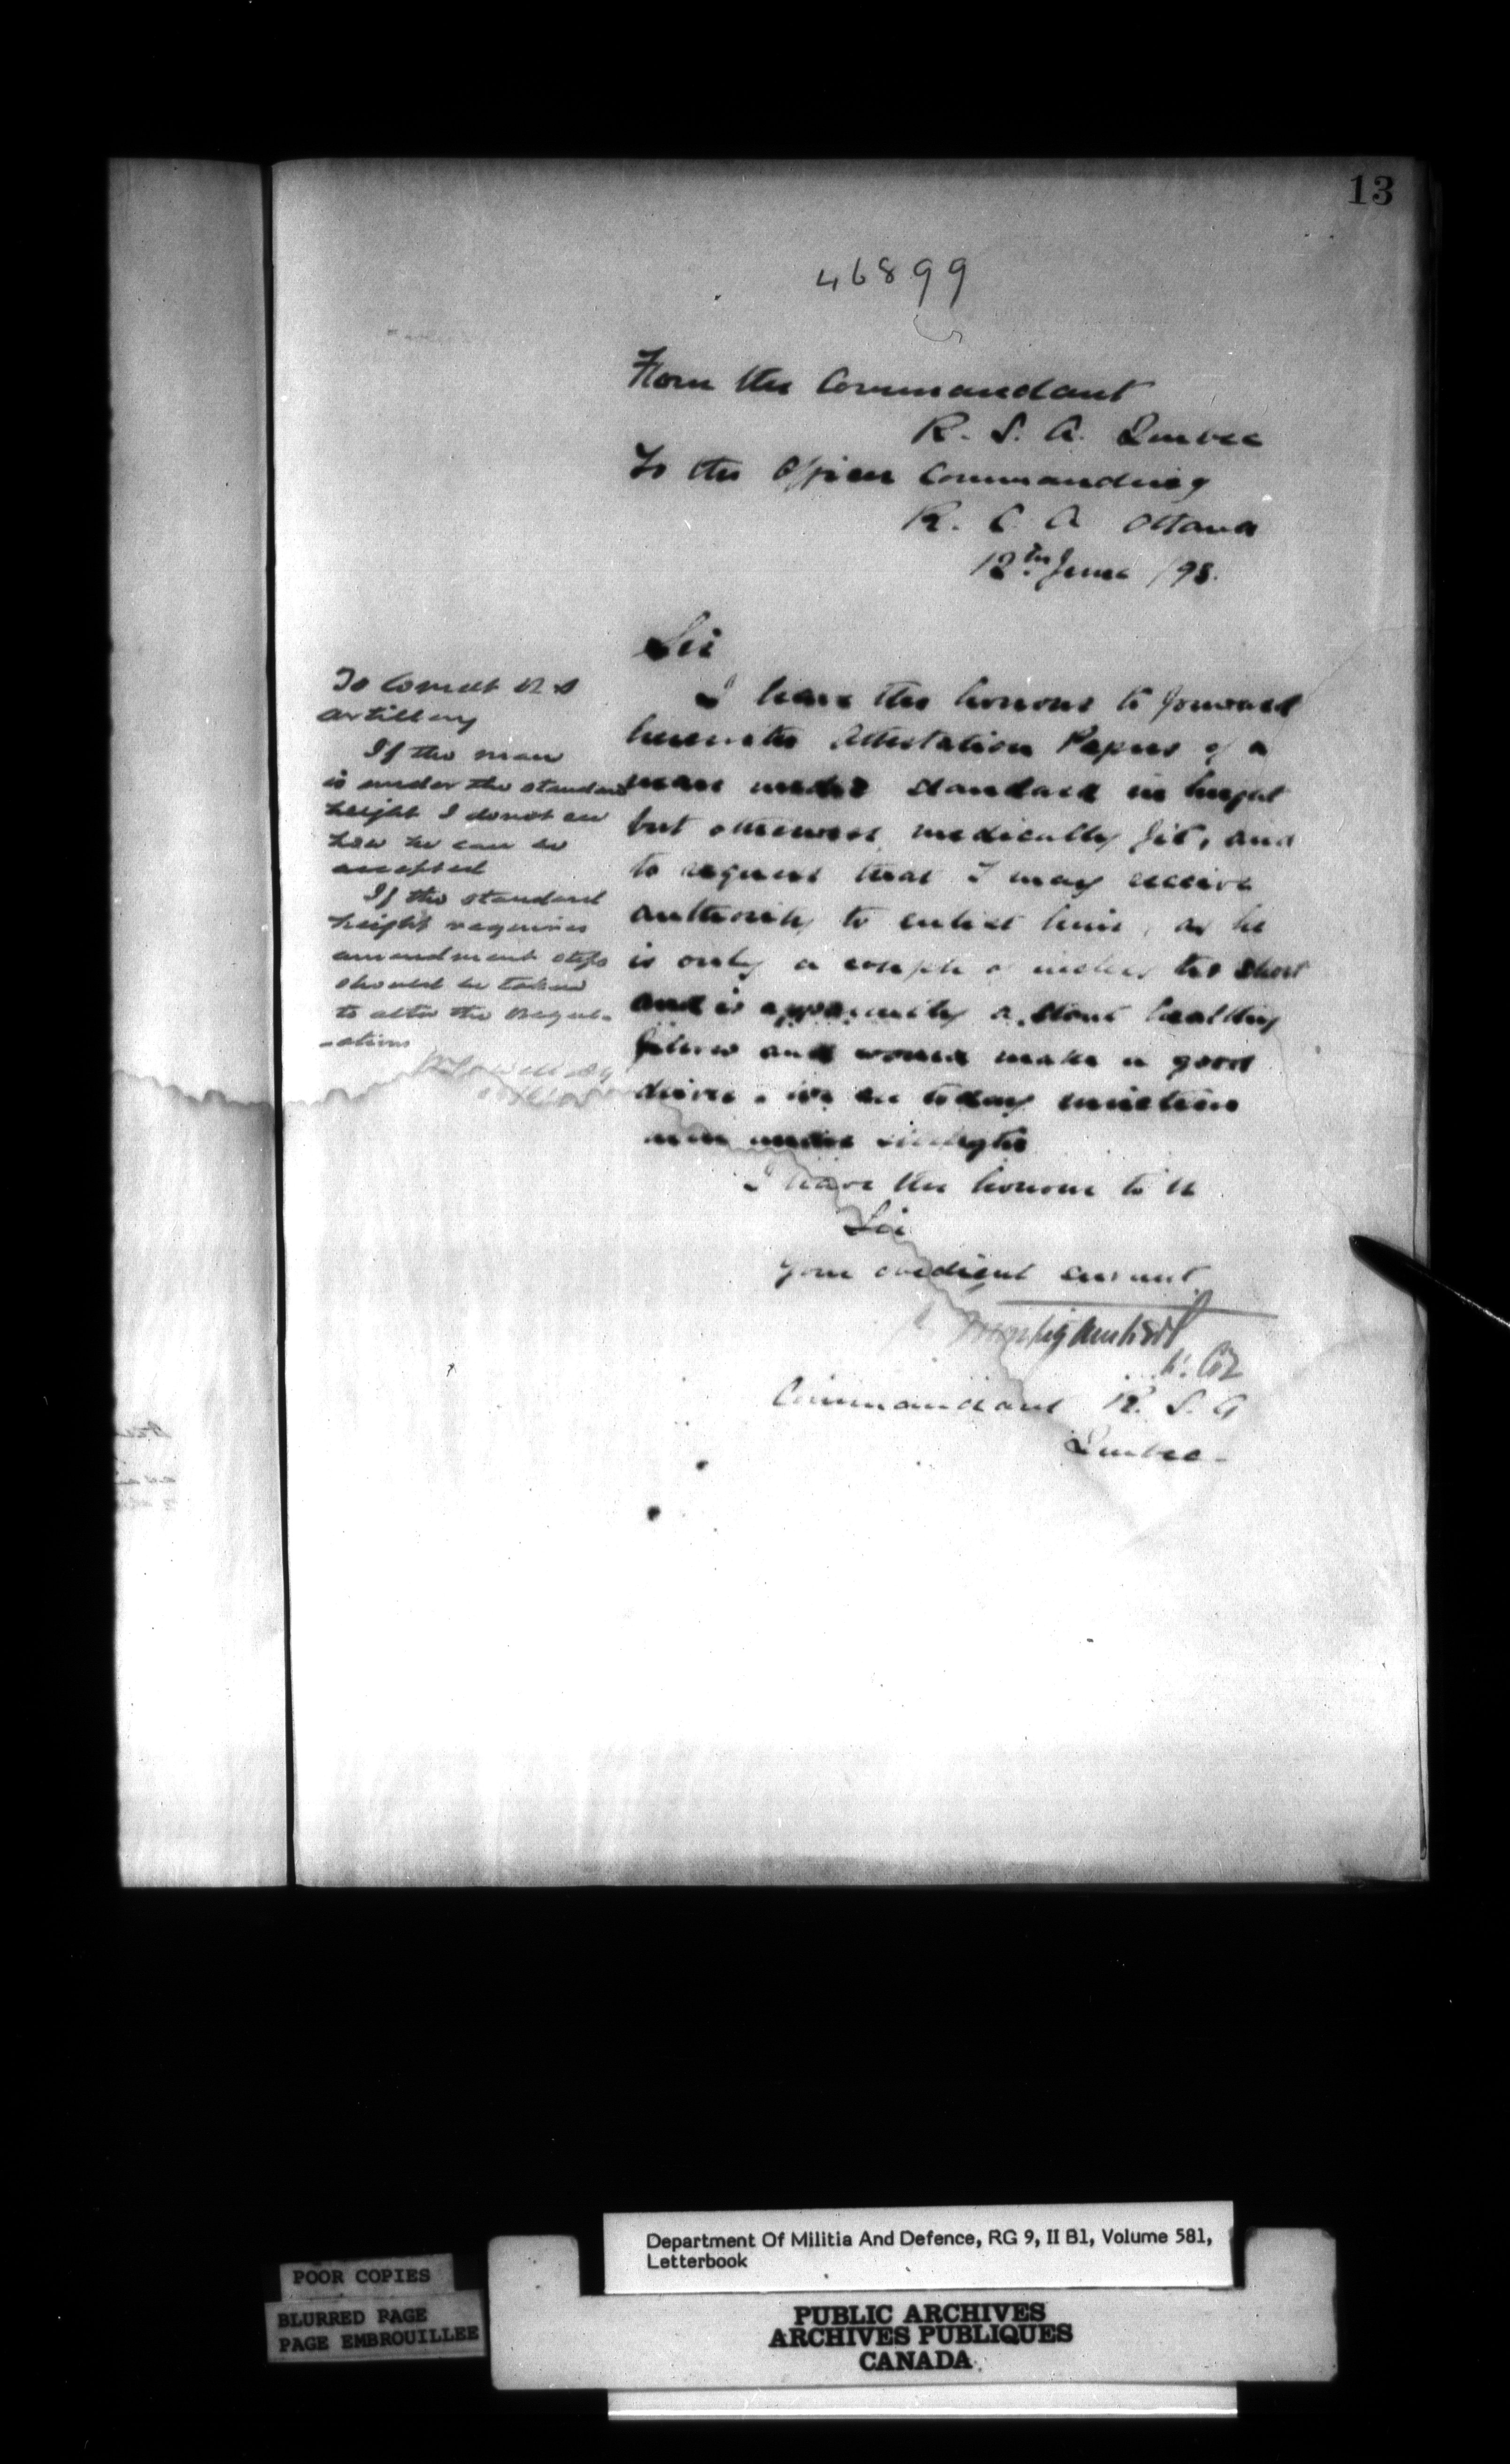 13
46899
From the Commandant
R. S. A. Quebec
To the Officer Commanding
R. C. A Ottawa
12th June /93.
Sir
I have the honour to forward
herewith Attestation Papers of a
man under standard in height
but otherwise medically fit, and
to request that I may receive
authority to enlist him, as he
is only a couple of inches too short
and is apparently a stout healthy
fellow and would make a good
driver. we are today nineteen
men under strength
I have the honour to be
Sir
Your obedient servant
Commandant R. S. A
Quebec.
To Comdt R S
Artillery
If the man
is under the standard
height I do not see
how he can be
accepted
If the standard
height requires
amendment steps
should be taken
to alter the Regul-
-ations
Department Of Militia And Defence, RG 9, II B1, Volume 581,
Letterbook
POOR COPIES
BLURRED PAGE
PAGE EMBROUILLEE
PUBLIC ARCHIVES
ARCHIVES PUBLIQUES
CANADA